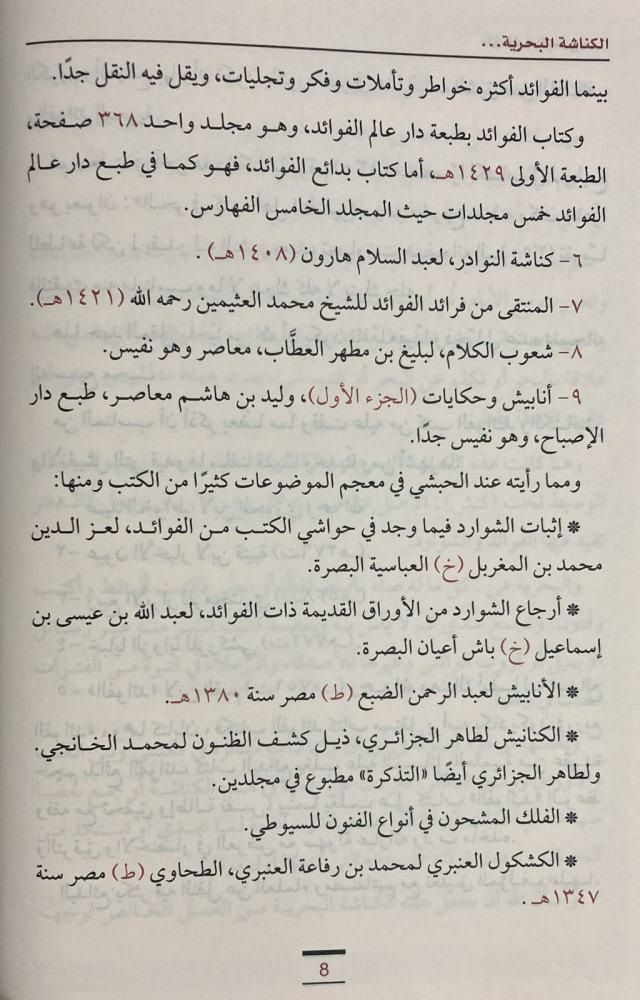 الكناشة البحرية...
بينما الفوائد أكثره خواطر وتأملات وفكر وتجليات، ويقل فيه النقل جدًا.
وكتاب الفوائد بطبعة دار عالم الفوائد، وهو مجلد واحد ٣٦٨ صفحة،
الطبعة الأولى ١٤٢٩هـ، أما كتاب بدائع الفوائد، فهو كما في طبع دار عالم
الفوائد خمس مجلدات حيث المجلد الخامس الفهارس.
٦- كناشة النوادر، لعبد السلام هارون (١٤٠٨هـ) .
٧- المنتقى من فرائد الفوائد للشيخ محمد العثيمين رحمه الله (١٤٢١هـ).
٨- شعوب الكلام، لبليغ بن مطهر العطَّاب، معاصر وهو نفيس.
٩- أنابيش وحكايات (الجزء الأول)، وليد بن هاشم معاصر، طبع دار
الإصباح، وهو نفيس جدًا.
ومما رأيته عند الحبشي في معجم الموضوعات كثيرًا من الكتب ومنها:
* إثبات الشوارد فيما وجد في حواشي الكتب من الفوائد، لعز الدين
محمد بن المغربل (خ) العباسية البصرة.
* أرجاع الشوارد من الأوراق القديمة ذات الفوائد، لعبد الله بن عيسى بن
إسماعيل (خ) باش أعيان البصرة.
* الأنابيش لعبد الرحمن الضبع (ط) مصر سنة ١٣٨٠هـ.
* الكنانيش لطاهر الجزائري، ذيل كشف الظنون لمحمد الخانجي.
ولطاهر الجزائري أيضًا «التذكرة» مطبوع في مجلدين.
* الفلك المشحون في أنواع الفنون للسيوطي.
* الكشكول العنبري لمحمد بن رفاعة العنبري، الطحاوي (ط) مصر سنة
١٣٤٧هـ .
8